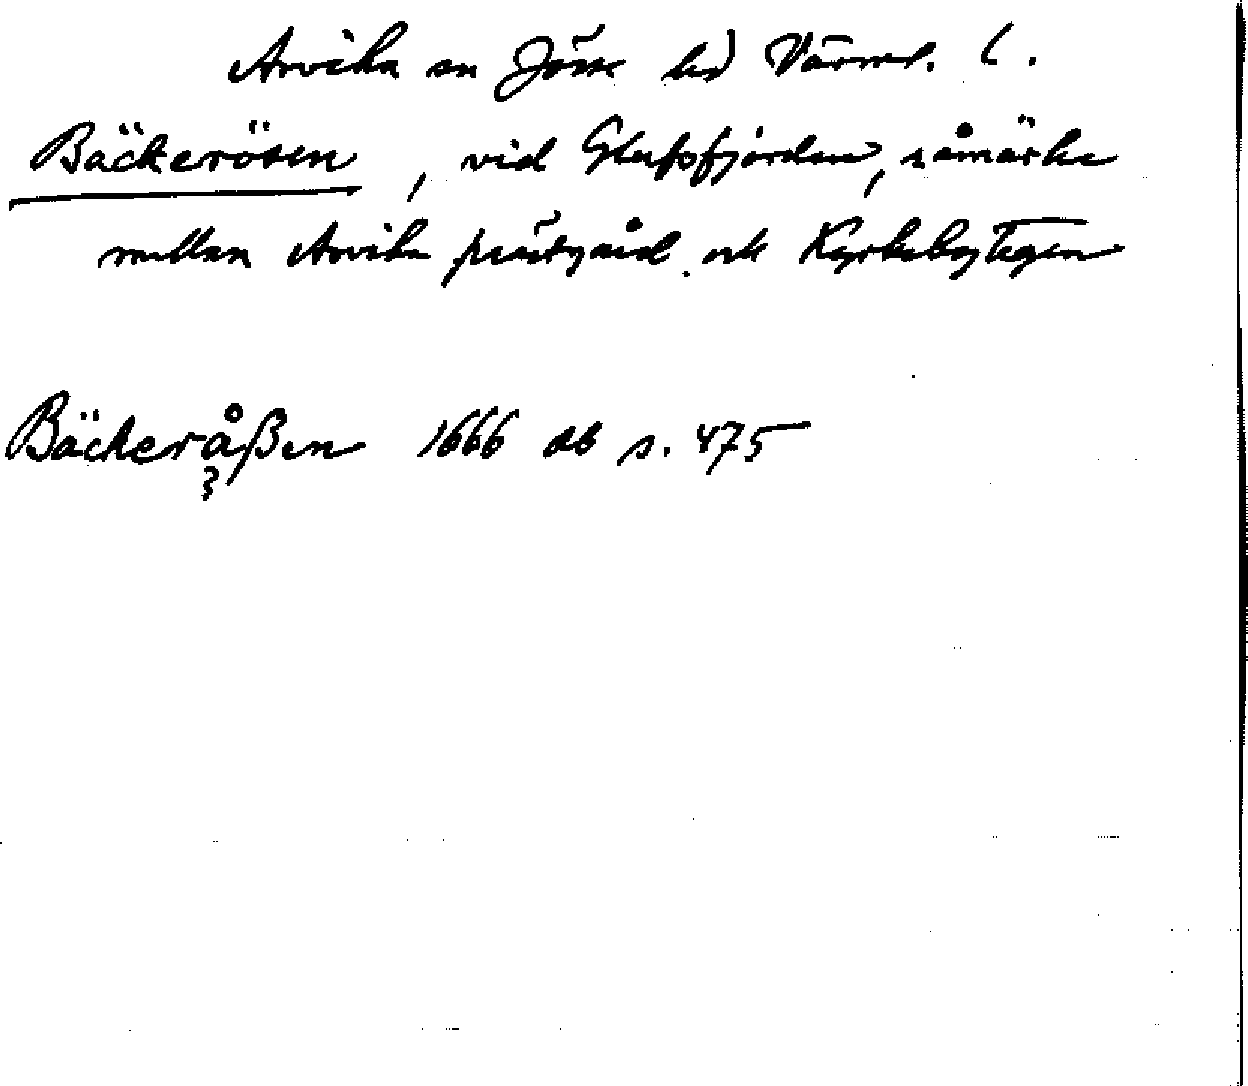 Arvika sn Jösse hd Värml. l.
Bäckerösen, vid Glafsfjorden, råmärke
mellan Arvika prästgård och Kyrkebytegen
Bäckeråßen 1666 db s. 475
?